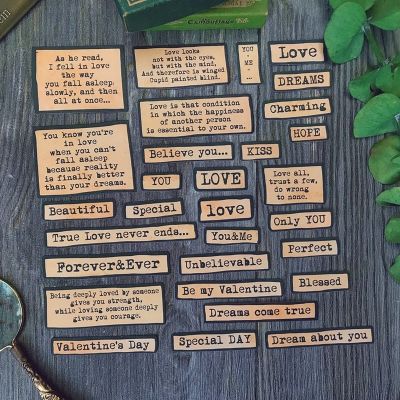 As he read,
I fell in love
the way
you fall asleep
slowly, and then
all at once...
Love looks
not with the eyes,
but with the mind,
And therefore is winged
Cupid painted blind.
YOU
ME
...
Love
DREAMS
Love is that condition
in which the happiness
of another person
is essential to your own.
Charming
HOPE
You know you're
in love
when you can't
fall asleep
because reality
is finally better
than your dreams.
Believe you...
KISS
YOU
LOVE
Love all,
trust a few,
do wrong
to none.
Beautiful
Special
love
Only YOU
True Love never ends...
You&Me
Perfect
Forever&Ever
Unbelievable
Being deeply loved by someone
gives you strength,
while loving someone deeply
gives you courage.
Be my Valentine
Blessed
Dreams come true
Valentine's Day
Special DAY
Dream about you